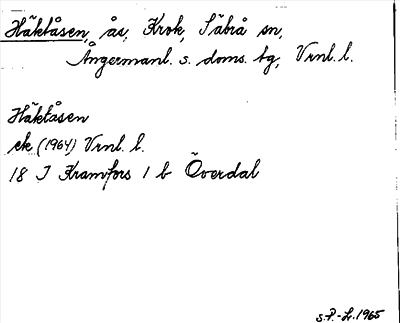 Häktåsen, ås, Krok, Säbrå sn,
Ångermanl. s. doms. tg, Vrnl. l.
Häktåsen
ek (1964) Vrnl. l.
18 I Kramfors 1 b Överdal
S.P.-Lr. 1965